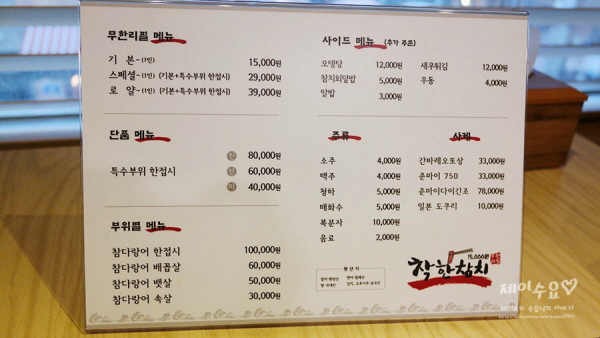 무한리필 메뉴
기 본-(1인) 15,000원
스페셜-(1인) (기본+특수부위 한접시) 29,000원
로 얄-(1인) (기본+특수부위 한접시) 39,000원
사이드 메뉴 (추가 주문)
오뎅탕 12,000원 새우튀김 12,000원
참치회덮밥 5,000원 우동 4,000원
알밥 3,000원
단품 메뉴
80,000원
특수부위 한접시 60,000원
40,000원
부위별 메뉴
참다랑어 한접시 100,000원
참다랑어 배꼽살 60,000원
참다랑어 뱃살 50,000원
참다랑어 속살 30,000원
주류
소주 4,000원
맥주 4,000원
청하 5,000원
매화수 5,000원
복분자 10,000원
음료 2,000원
사케
간바레오또상 33,000원
준마이 750 33,000원
준마이다이긴조 78,000원
일본 도쿠리 10,000원
원산지
15,000원
착한참치
제이수요♡